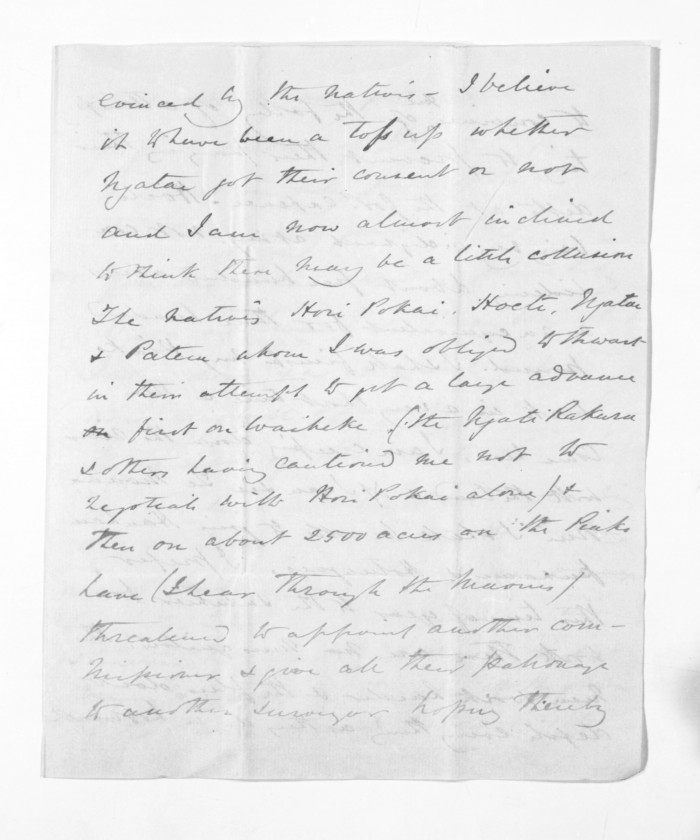 evinced by the natives - I believe
it to have been a toss up whether
Ngatae got their consent or not
and I am now almost inclined
to think there may be a little collusion
The natives Hori Pokai. Hoete, Ngatae
& Patene whom I was obliged to thwart
in their attempt to get a large advance
first on Waiheke (the Ngati Rakura
& others having cautioned me not to
negotiate with Hori Pokai alone) &
then on about 2500 acres on the Piako
have (I hear through the Maories)
threatened to appoint another com-
missioner & give all their patronage
to another surveyor hoping thereby